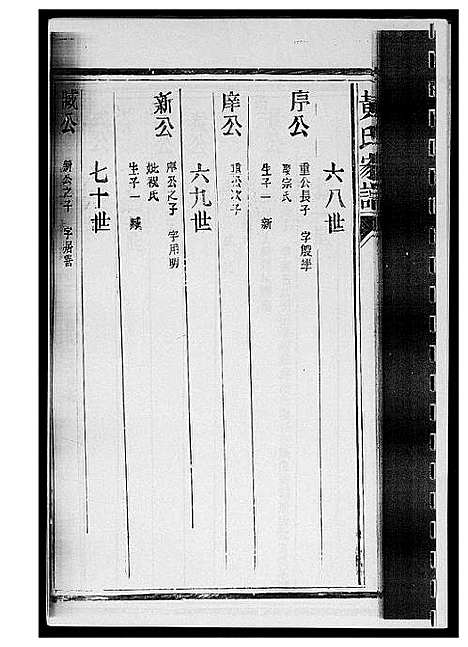 黃氏家譜
六八世
序公
重公長子 字殷學
娶宗氏
生子一 新
庠公
重公次子
六九世
新公
庠公之子 字用明
妣祝氏
生子一 臧
七十世
臧公
新公之子